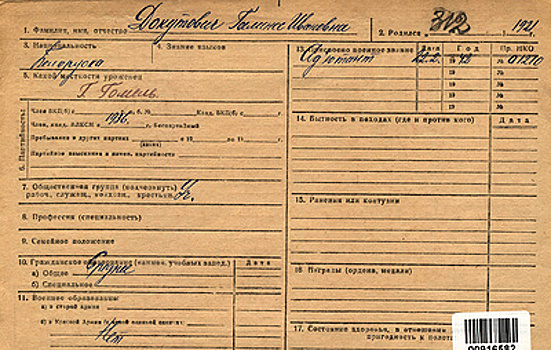 1. Фамилия, имя, отчество Докутович Галина Ивановна
2. Родился 312 1921
3. Национальность Белоруска
4. Знание языков
5. Какой местности уроженец
Г. Гомель.
6. Партийность:
Член ВКП(б) с г. п.б. № Канд. ВКП(б) с
Член, канд. ВЛКСМ с 1936 г. Беспартийный
Пребывания в других партиях с 19 по 19 г.
(каких)
Партийные взыскания и назнач. партийности
7. Общественная группа (подчеркнуть)
рабоч., служащ., колхозн., крестьян.
8. Профессия (специальность)
9. Семейное положение
10. Гражданское образование (наимен. учебных завед.) Дата
а) Общее Средне
б) Специальное
11. Военное образование: Дата
а) в старой армии
б) в Красной Армии
Нет
13. Присвоено военное звание Дата Год Пр. НКО
Адъютант 22.2. 1942 № 01210
19 №
19 №
19 №
14. Бытность в походах (где и против кого) Дата
15. Ранения или контузии
16. Награды (ордена, медали)
17. Состояние здоровья, в отношении
пригодность к
00916582